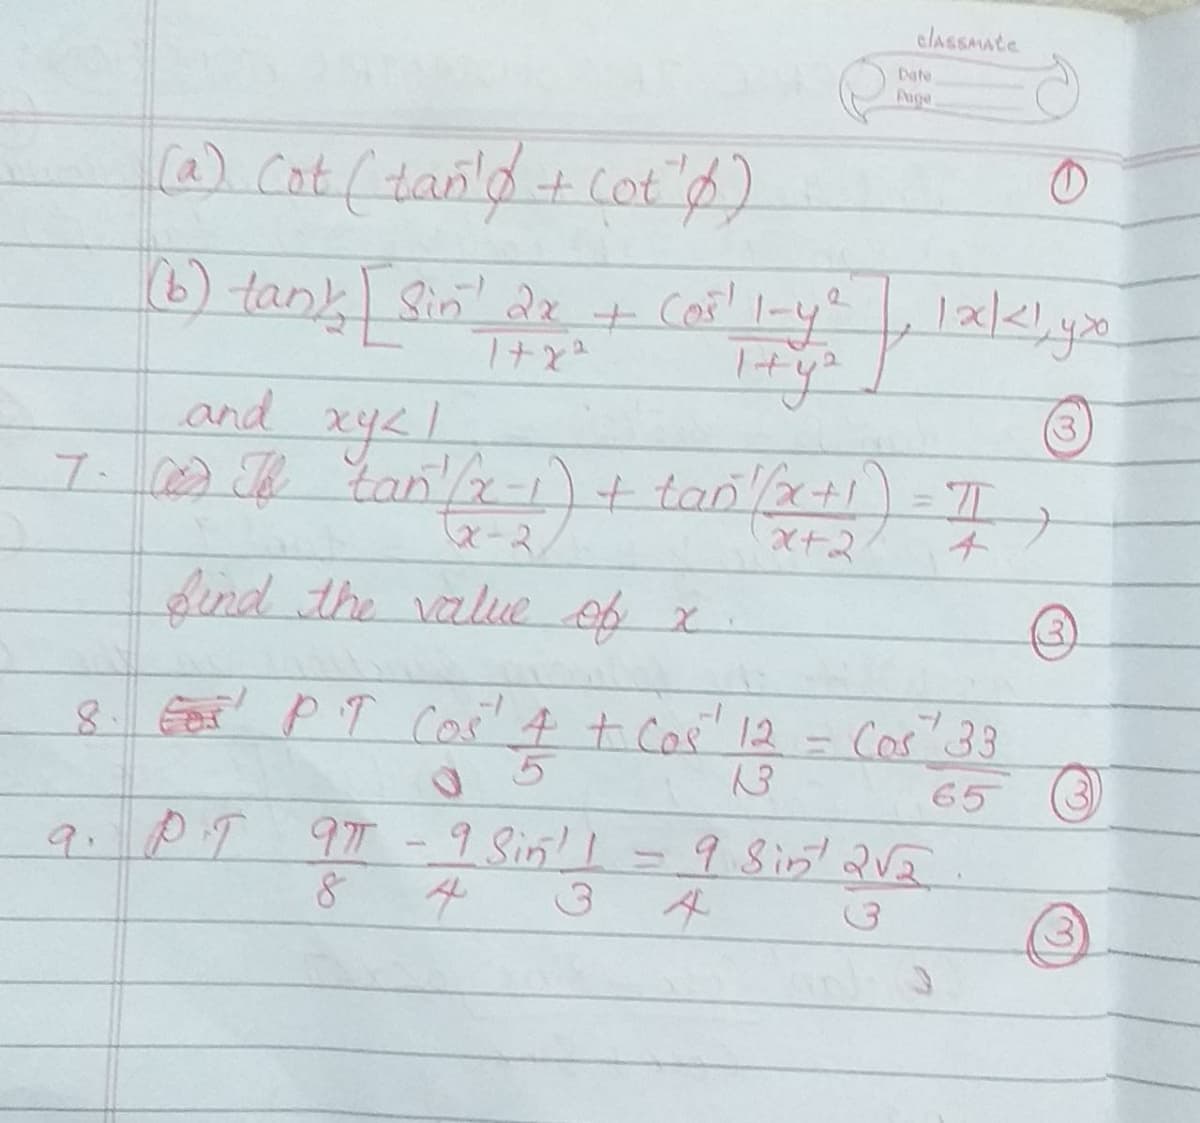 classmate
Date
Page
(a) Cot (tan⁻¹ϕ + Cot⁻¹ϕ) ①
(b) tan 1/2 [ Sin⁻¹ 2x/1+x² + Cos⁻¹ 1-y²/1+y² ], |x|<1, y>0
and xy<1 ③
7. If tan⁻¹(x-1/x-2) + tan⁻¹(x+1/x+2) = π/4,
find the value of x. ③
8. P.T Cos⁻¹ 4/5 + Cos⁻¹ 12/13 = Cos⁻¹ 33/65 ③
9. P.T 9π/8 - 9/4 Sin⁻¹ 1/3 = 9/4 Sin⁻¹ 2√2/3. ③